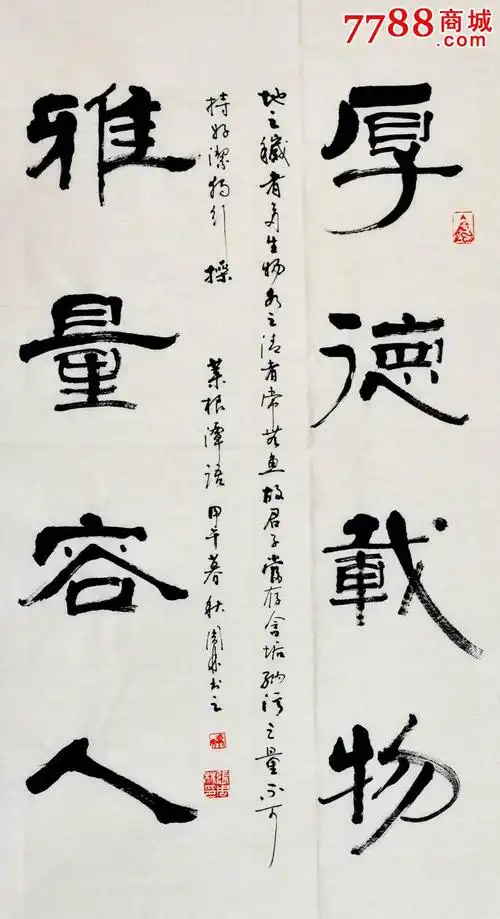 7788商城
.com
厚
德
載
物
地之穢者多生物水之清者常無魚故君子當存含垢納污之量不可
持好潔獨行操
菜根潭語 甲午暮秋 書之
雅
量
容
人